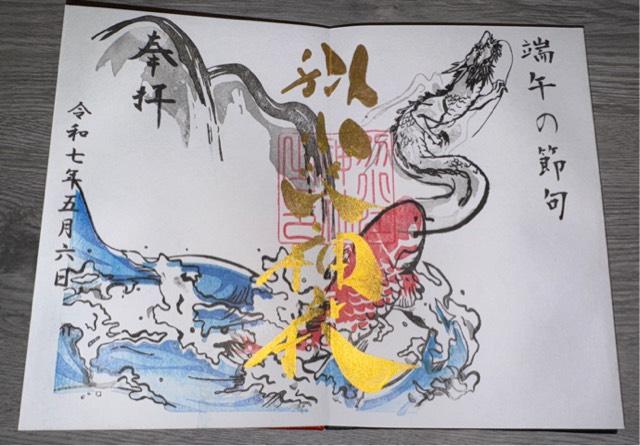 端午の節句
別小江神社
奉拝
令和七年五月六日